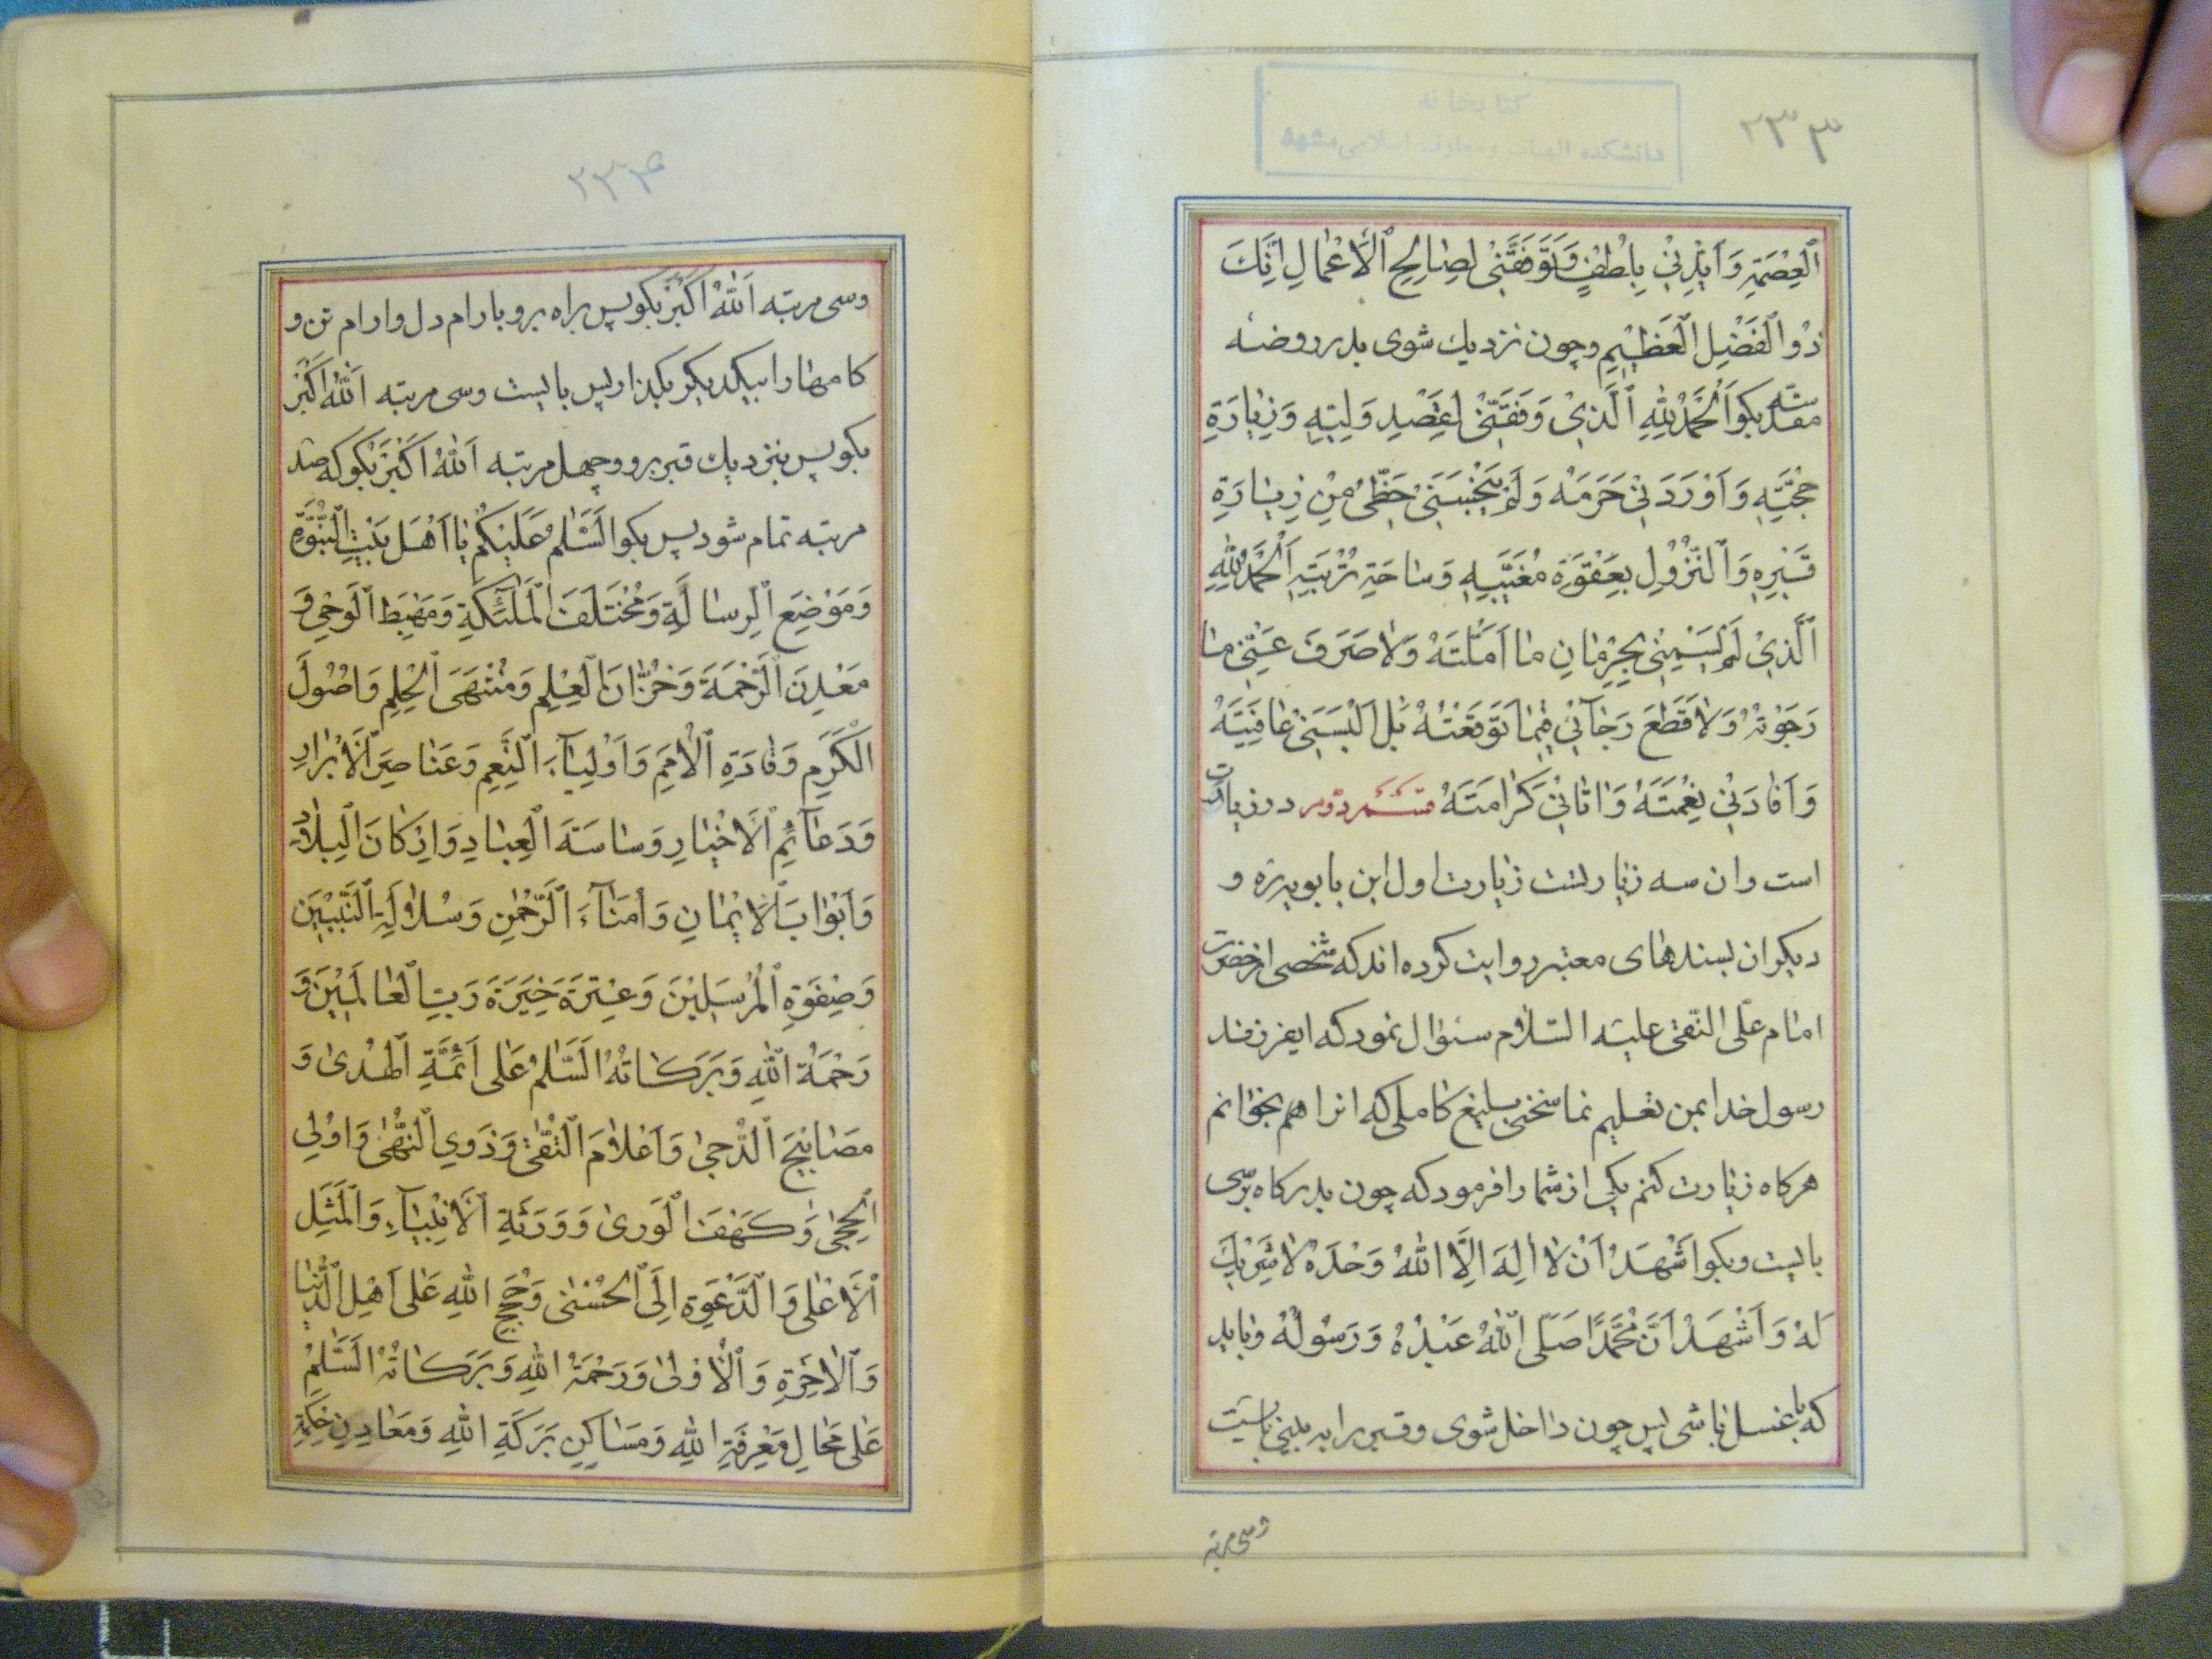 ۲۳۳
کتابخانه
دانشکده الهیات و معارف اسلامی مشهد
ٱلْعِصْمَةِ وَاَیِّدْنِیْ بِلُطْفٍ وَتَوَفَّقَنِیْ لِصٰالِحِ ٱلْاَعْمٰالِ اِنَّكَ
ذُوٱلْفَضْلِ ٱلْعَظِیْمِ وچون نزدیك شوی بدر روضهٔ
مقدسه بکو اَلْحَمْدُ لِلّٰهِ ٱلَّذِیْ وَفَّقَنِیْ لِقَصْدِ وَلِیِّهِ وَزِیٰارَةِ
حُجَّتِهِ وَاَوْرَدَنِیْ حَرَمَهُ وَلَمْ یَبْخَسْنِیْ حَظّی مِنْ زِیٰارَةِ
قَبْرِهِ وَٱلنُّزُوْلِ بِعَقْوَةِ مُغَیَّبِهِ وَسٰاحَةِ تُرْبَتِهِ اَلْحَمْدُ لِلّٰهِ
ٱلَّذِیْ لَمْ یَسِمْنِیْ بِحِرْمٰانِ مٰا اَمَّلْتَهُ وَلاٰ صَرَفَ عَنِّیْ مٰا
رَجَوْتُهُ وَلاٰ قَطَعَ رَجٰآئِیْ فِیْمٰا تَوَقَّعْتُهُ بَلْ اَلْبَسَنِیْ عٰافِیَتَهُ
وَاَفٰادَنِیْ نِعْمَتَهُ وَاٰتٰانِیْ كَرٰامَتَهُ قسم دوم در زیارت
است وان سه زیارتست زیارت اول ابن بابویه ره و
دیکران بسندهای معتبر روایت کرده اند که شخصی از حضرت
امٰام علی النّقی علیه السّلام سئوال نمود که ایفرزند
رسول خدا بمن تعلیم نما سخنی بلیغ کاملی که انرا هم بخوانم
هرکاه زیارت کنم یکی از شما را فرمود که چون بدرکاه برسی
بایست وبکو اَشْهَدُ اَنْ لاٰ اِلٰهَ اِلَّا اللّٰهُ وَحْدَهُ لاٰ شَرِیْكَ
لَهُ وَاَشْهَدُ اَنَّ مُحَمَّدًا صَلَّی اللّٰهُ عَبْدُهُ وَرَسُوْلُهُ وباید
که با غسل باشی پس چون داخل شوی وقبر را به بینی بایست
وسی مرتبه
۲۳۴
وسی مرتبه اَللّٰهُ اَکْبَرُ بکو پس براه برو بارام دل وارام تن و
کامها را بیکدیکر بکذار پس بایست وسی مرتبه اَللّٰهُ اَکْبَرُ
بکو پس بنزدیك قبر برو وچهل مرتبه اَللّٰهُ اَکْبَرُ بکو که صد
مرتبه تمام شود پس بکو اَلسَّلٰمُ عَلَیْکُمْ یٰا اَهْلَ بَیْتِ ٱلنُّبُوَّةِ
وَمَوْضِعَ ٱلرِّسٰالَةِ وَمُخْتَلَفَ ٱلْمَلٰئِکَةِ وَمَهْبِطَ ٱلْوَحْیِ وَ
مَعْدِنَ ٱلرَّحْمَةِ وَخُزّٰانَ ٱلْعِلْمِ وَمُنْتَهَیَ ٱلْحِلْمِ وَاُصُوْلَ
الْکَرَمِ وَقٰادَةِ ٱلْاُمَمِ وَاَوْلِیٰآءَ ٱلنِّعَمِ وَعَنٰاصِرَ ٱلْاَبْرٰارِ
وَدَعٰآئِمِ ٱلْاَخْیٰارِ وَسٰاسَةَ ٱلْعِبٰادِ وَاَرْکٰانَ ٱلْبِلاٰدِ
وَاَبْوٰابَ ٱلْاِیْمٰانِ وَاُمَنٰآءَ ٱلرَّحْمٰنِ وَسُلاٰلَةِ ٱلنَّبِیّیْنَ
وَصِفْوَةِ ٱلْمُرْسَلِیْنَ وَعِتْرَةَ خِیَرَةَ رَبِّ ٱلْعٰالَمِیْنَ وَ
رَحْمَةُ اللّٰهِ وَبَرَکٰاتُهُ اَلسَّلٰمُ عَلٰی اَئِمَّةِ ٱلْهُدیٰ وَ
مَصٰابِیْحَ ٱلدُّجیٰ وَاَعْلاٰمَ ٱلتُّقیٰ وَذَوِی ٱلنُّهیٰ وَاُوْلِی
ٱلْحِجیٰ وَکَهْفَ ٱلْوَریٰ وَوَرَثَةِ ٱلْاَنْبِیٰآءِ وَٱلْمَثَلِ
ٱلْاَعْلٰی وَٱلدَّعْوَةِ اِلَی ٱلْحُسْنیٰ وَحُجَجِ اللّٰهِ عَلٰی اَهْلِ ٱلدُّنْیٰا
وَٱلْاٰخِرَةِ وَٱلْاُوْلیٰ وَرَحْمَةُ اللّٰهِ وَبَرَکٰاتُهُ اَلسَّلٰمُ
عَلٰی مَحٰالِ مَعْرِفَةِ اللّٰهِ وَمَسٰاکِنِ بَرَکَةِ اللّٰهِ وَمَعٰادِنِ حِکْمَةِ